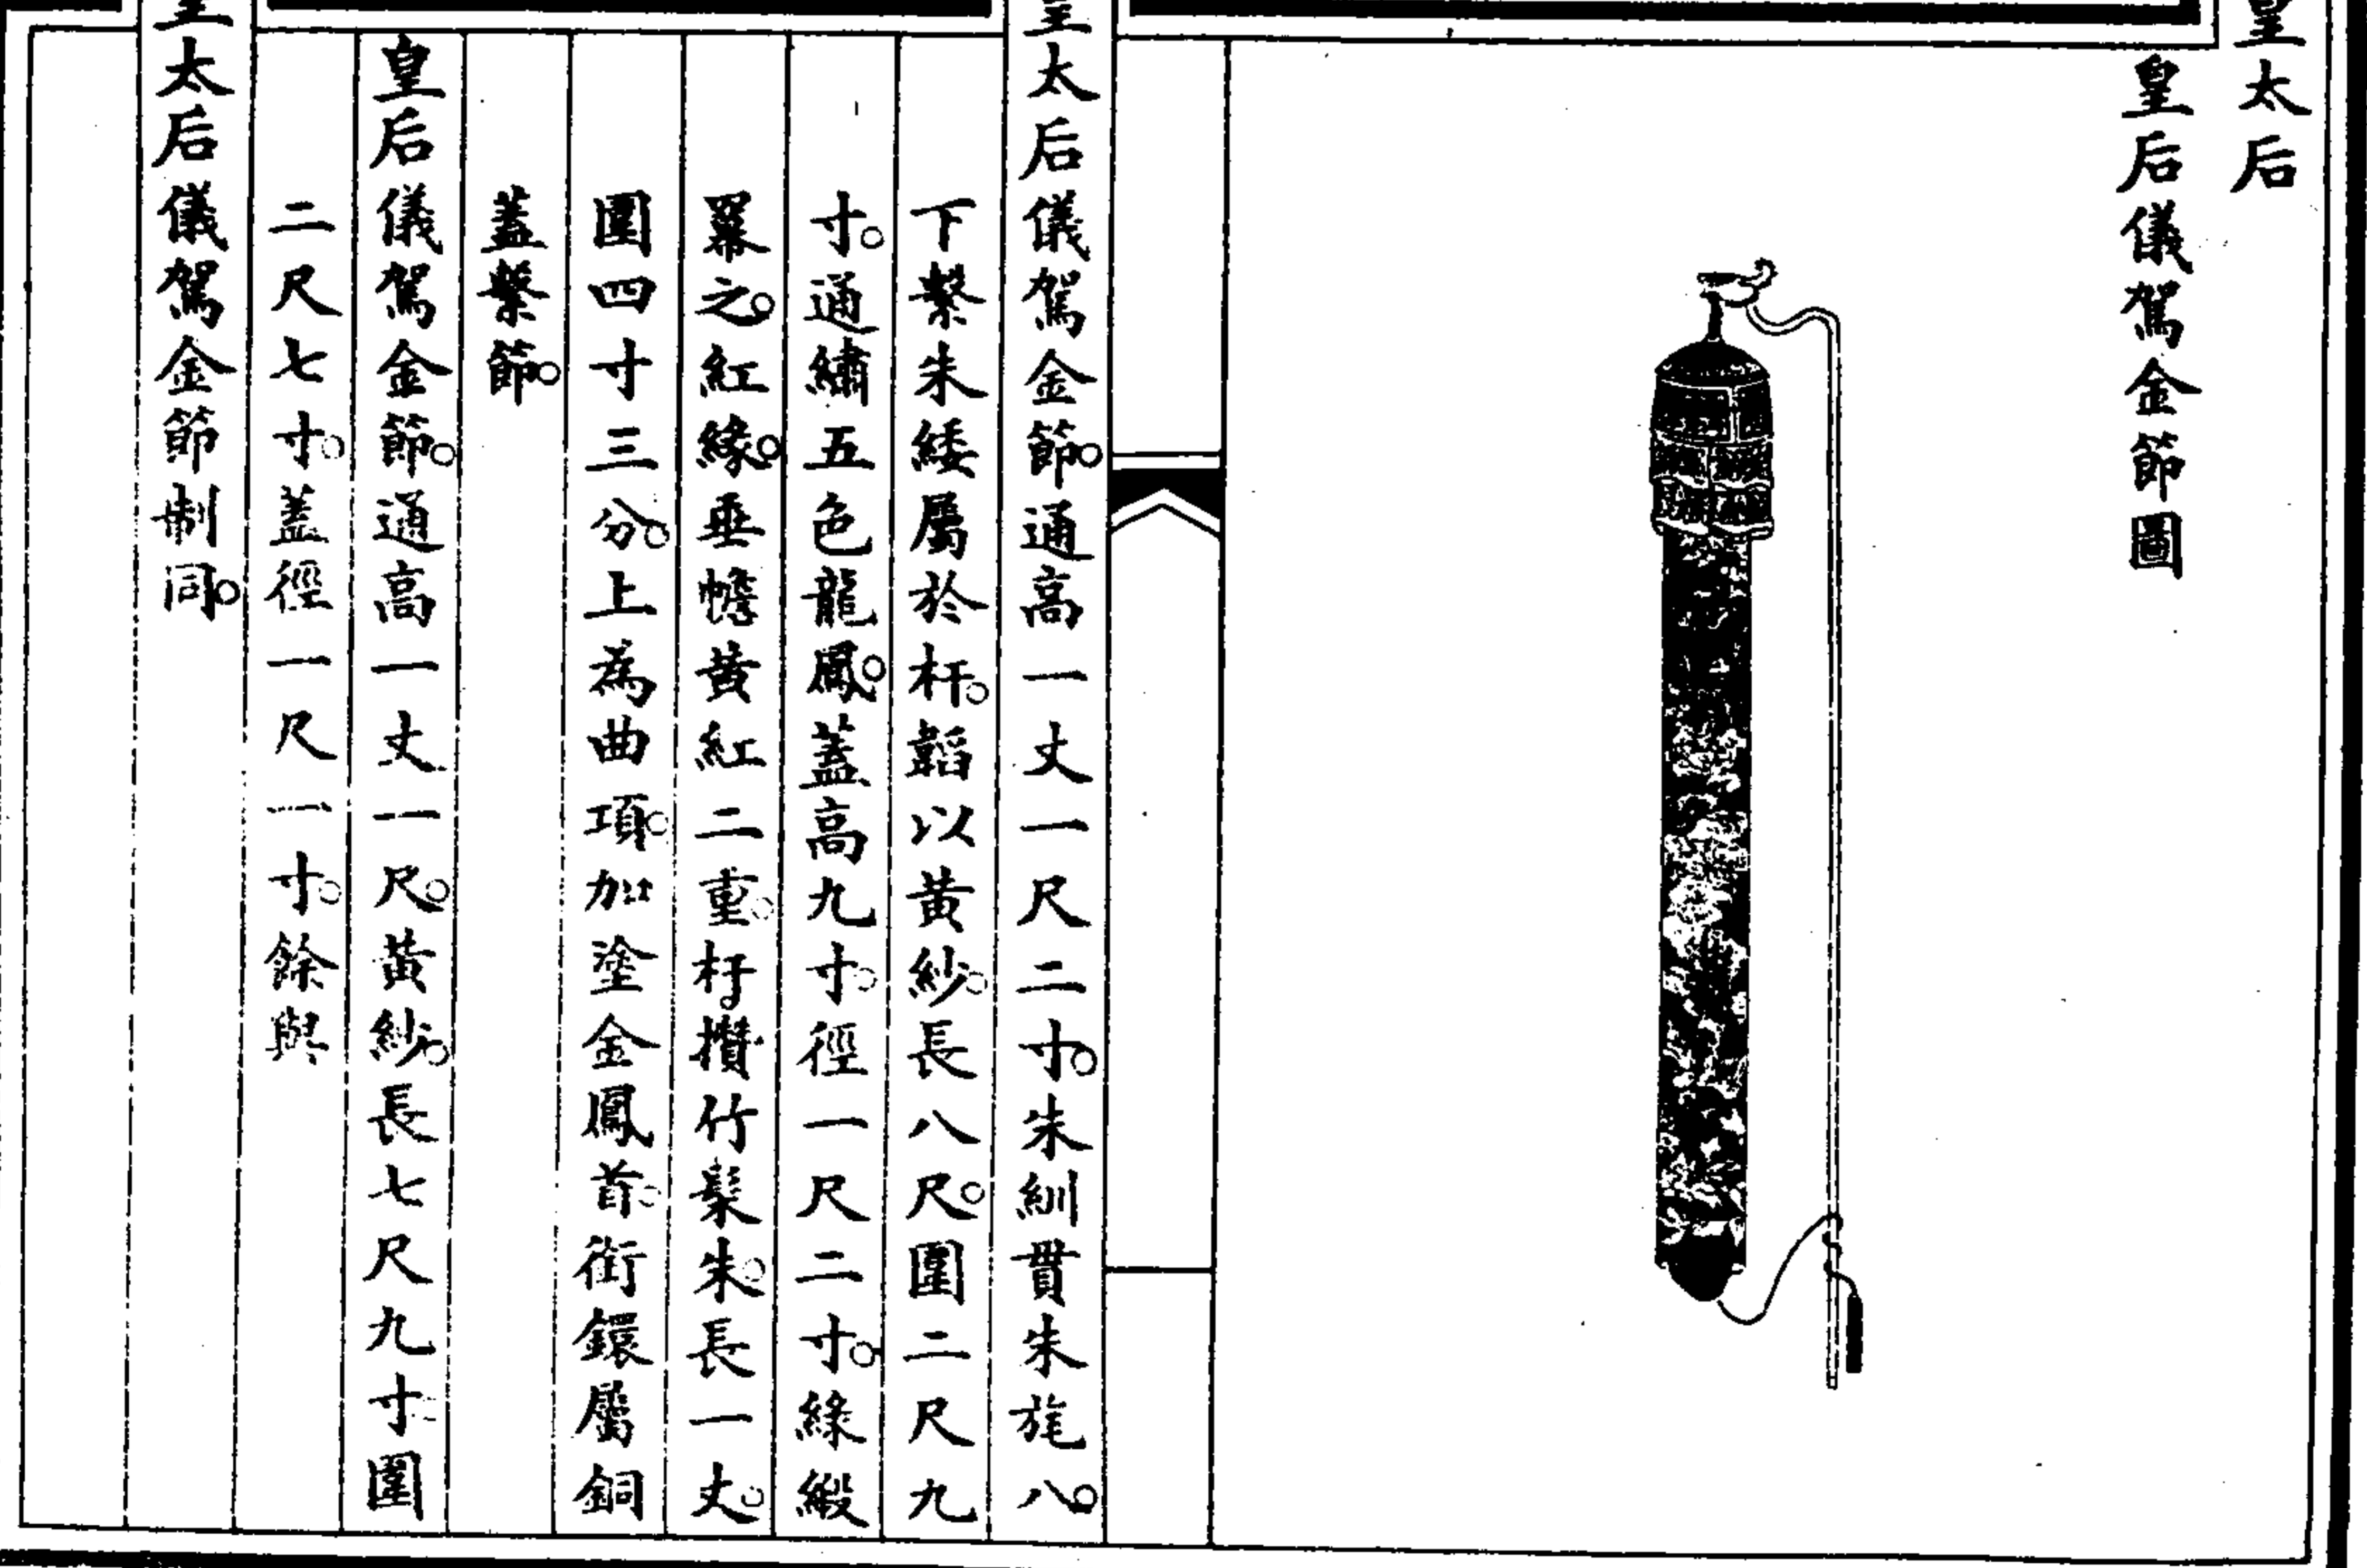 皇太后
皇后儀駕金節圖
皇太后儀駕金節。通高一丈一尺二寸。朱紃貫朱旄八。
下繫朱緌屬於杆。韜以黃紗。長八尺。圍二尺九
寸。通繡五色龍鳳。蓋高九寸。徑一尺二寸。綠緞
冪之。紅緣。垂幨黃紅二重。杆攢竹髹朱。長一丈。
圍四寸三分。上為曲項。加塗金鳳首。銜鐶屬銅
蓋繫節。
皇后儀駕金節。通高一丈一尺。黃紗。長七尺九寸。圍
二尺七寸。蓋徑一尺一寸。餘與
皇太后儀駕金節制同。